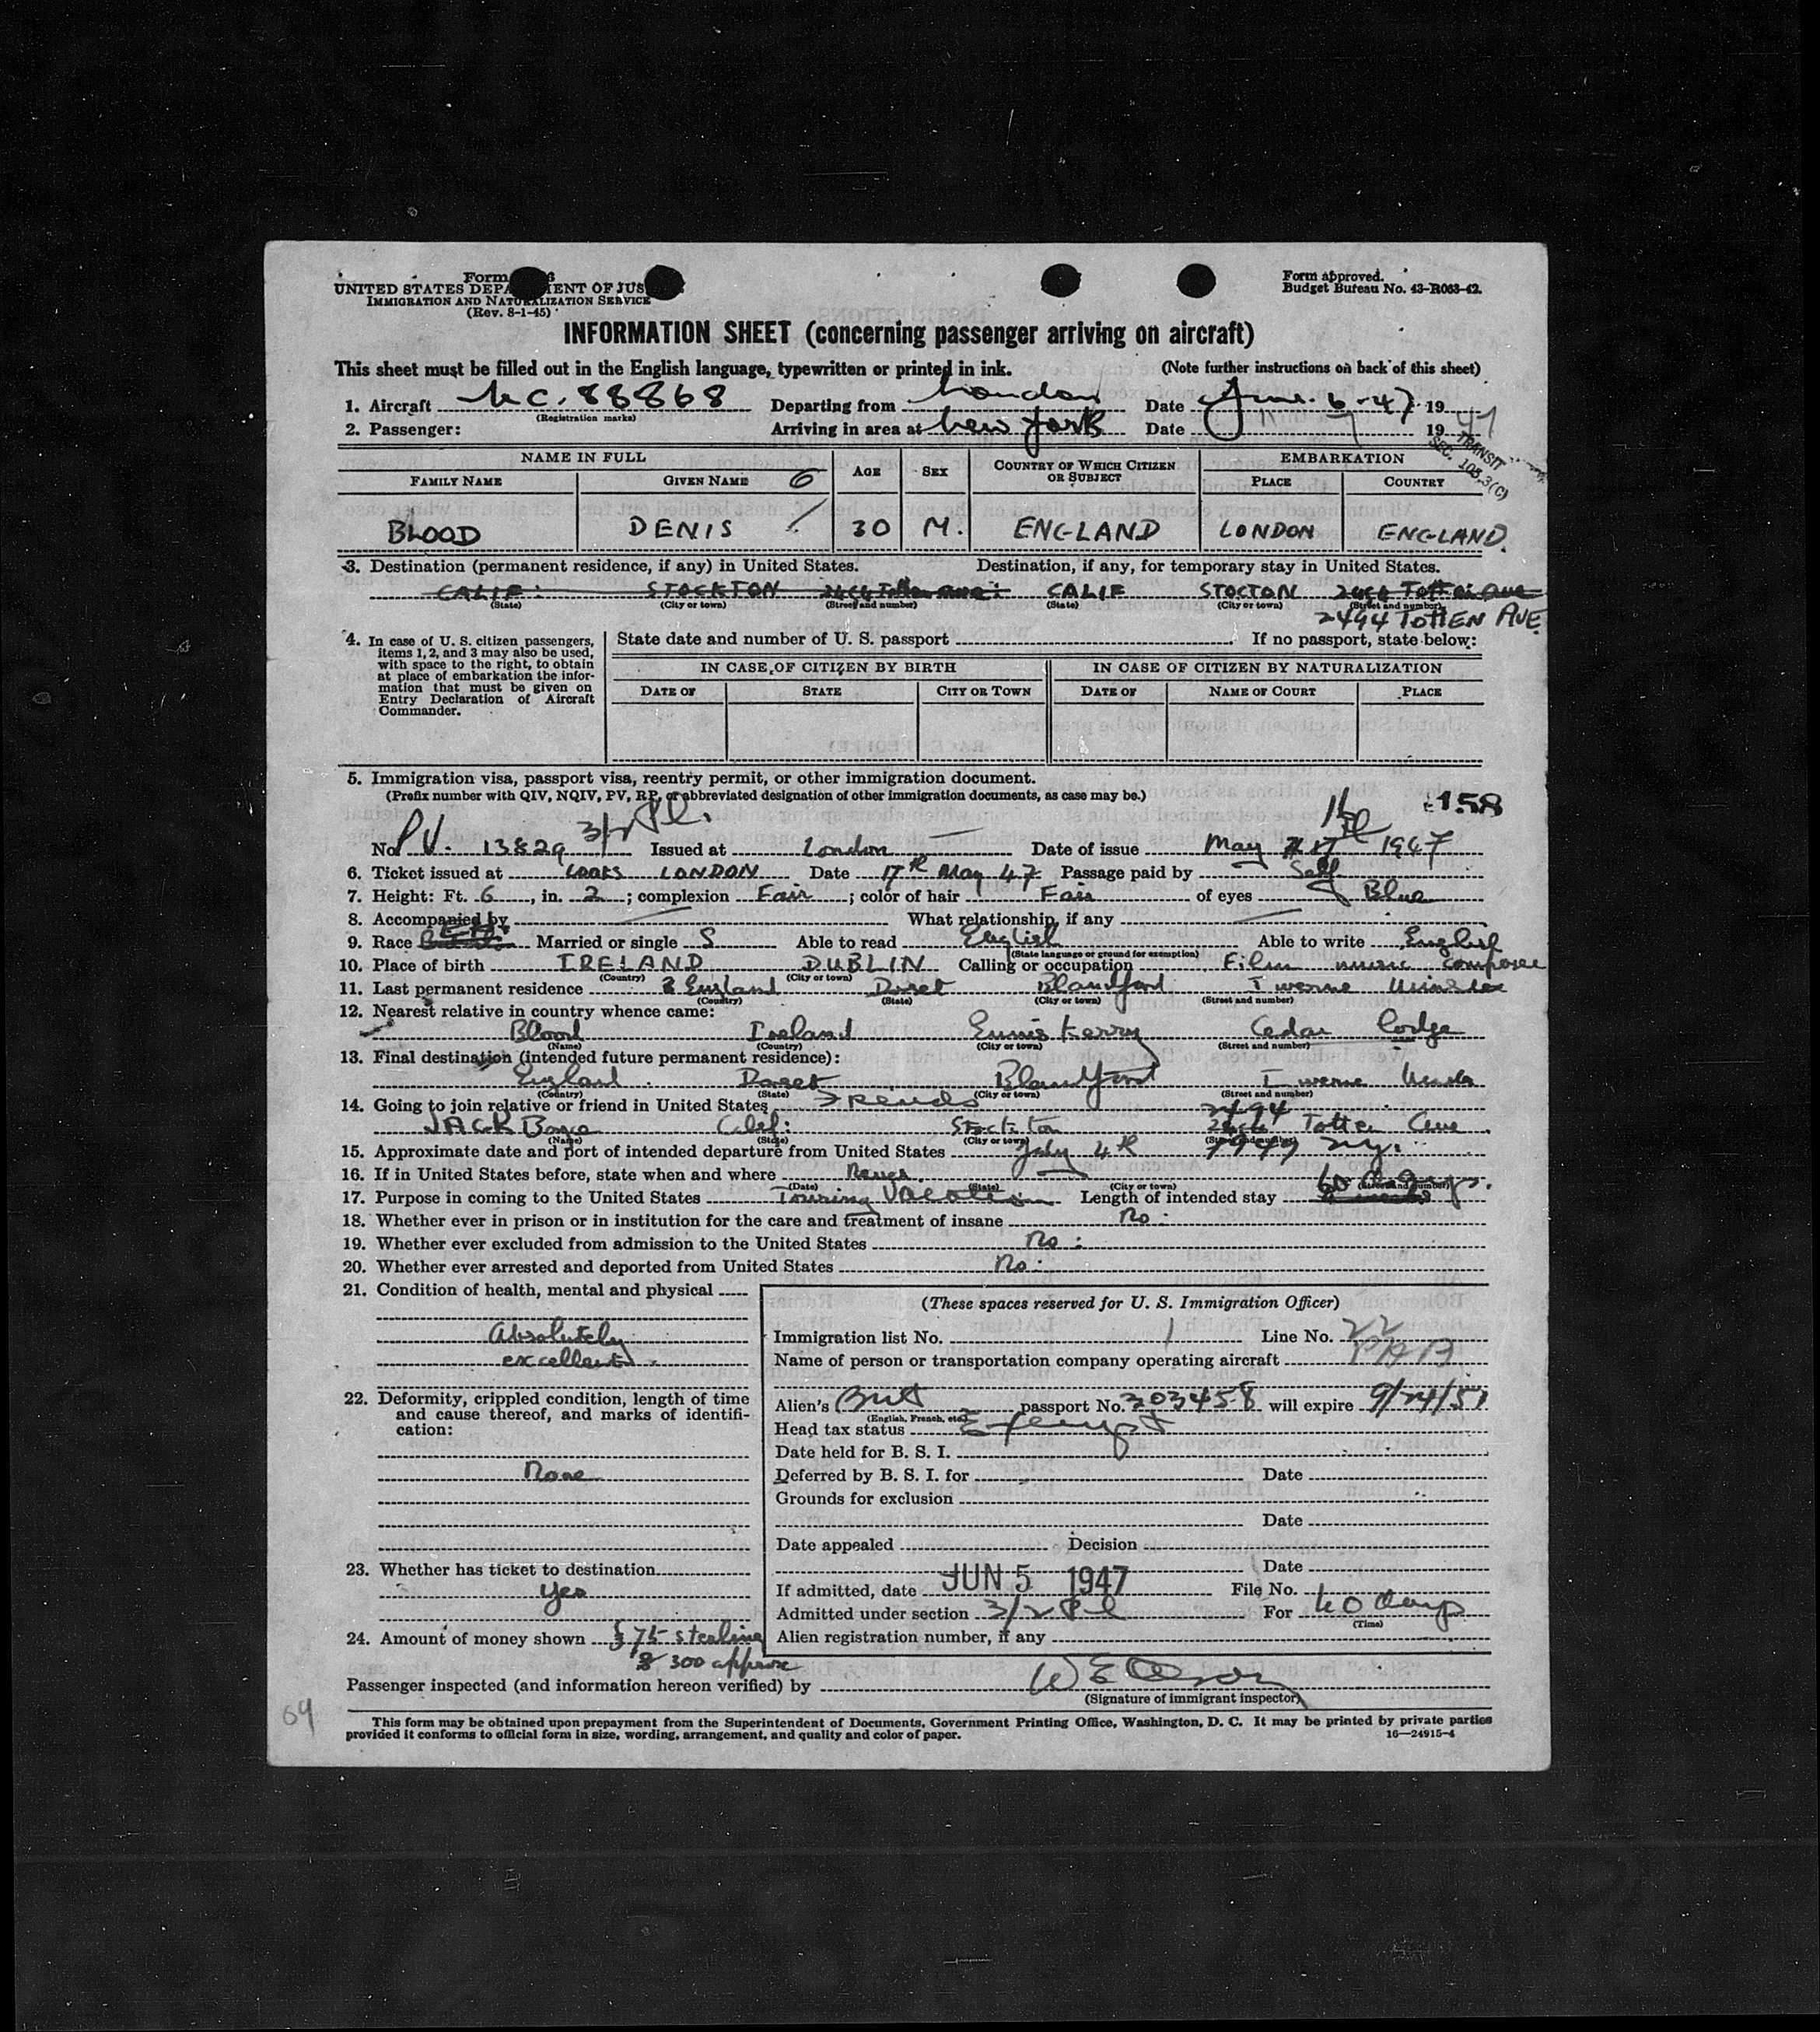 Form
UNITED STATES DEPARTMENT OF JUSTICE
IMMIGRATION AND NATURALIZATION SERVICE
(Rev. 8-1-45)
Form approved.
Budget Bureau No. 43-R063-42.
INFORMATION SHEET (concerning passenger arriving on aircraft)
This sheet must be filled out in the English language, typewritten or printed in ink. (Note further instructions on back of this sheet)
1. Aircraft NC. 88868 Departing from London Date June 6-47 19
(Registration marks)
2. Passenger: Arriving in area at New York Date 19 47
TRANSIT
SEC. 103.3(C)
NAME IN FULL AGE SEX COUNTRY OF WHICH CITIZEN OR SUBJECT EMBARKATION
FAMILY NAME GIVEN NAME 6 PLACE COUNTRY
BLOOD DENIS 30 M. ENGLAND LONDON ENGLAND.
3. Destination (permanent residence, if any) in United States. Destination, if any, for temporary stay in United States.
CALIF: STOCKTON CALIF STOCTON
(State) (City or town) (Street and number) (State) (City or town) (Street and number)
2494 TOTTEN AVE
4. In case of U. S. citizen passengers, items 1, 2, and 3 may also be used, with space to the right, to obtain at place of embarkation the information that must be given on Entry Declaration of Aircraft Commander.
State date and number of U. S. passport If no passport, state below:
IN CASE OF CITIZEN BY BIRTH IN CASE OF CITIZEN BY NATURALIZATION
DATE OF STATE CITY OR TOWN DATE OF NAME OF COURT PLACE
5. Immigration visa, passport visa, reentry permit, or other immigration document.
(Prefix number with QIV, NQIV, PV, RP, or abbreviated designation of other immigration documents, as case may be.)
3/2 158
No. PV. 13829 Issued at London Date of issue May 1947
6. Ticket issued at COOKS LONDON Date 17th May 47 Passage paid by Self
7. Height: Ft. 6, in. 2; complexion Fair; color of hair Fair of eyes Blue
8. Accompanied by What relationship, if any
9. Race Married or single S Able to read English Able to write English
(State language or ground for exemption)
10. Place of birth IRELAND DUBLIN Calling or occupation Film music composer
(Country) (City or town)
11. Last permanent residence England Dorset Blandford Iwerne Minster
(Country) (State) (City or town) (Street and number)
12. Nearest relative in country whence came:
Blood Ireland Enniskerry Cedar Lodge
(Name) (Country) (City or town) (Street and number)
13. Final destination (intended future permanent residence):
England. Dorset Blandford Iwerne
(Country) (State) (City or town) (Street and number)
14. Going to join relative or friend in United States Friends
2494
JACK Calif: Stockton Totten Ave.
(Name) (State) (City or town) (Street and number)
15. Approximate date and port of intended departure from United States July 4th 1947 N.Y.
16. If in United States before, state when and where Never.
(Date) (State) (City or town) (Street and number)
17. Purpose in coming to the United States Touring Vacation Length of intended stay 60 days.
18. Whether ever in prison or in institution for the care and treatment of insane No.
19. Whether ever excluded from admission to the United States No:
20. Whether ever arrested and deported from United States No:
21. Condition of health, mental and physical
Absolutely
excellent.
22. Deformity, crippled condition, length of time and cause thereof, and marks of identification:
None
23. Whether has ticket to destination
Yes
24. Amount of money shown £75 sterling
$300 approx
(These spaces reserved for U. S. Immigration Officer)
Immigration list No. 1 Line No. 22
Name of person or transportation company operating aircraft
Alien's Brit passport No. 203458 will expire 9/24/51
(English, French, etc.)
Head tax status Exempt
Date held for B. S. I.
Deferred by B. S. I. for Date
Grounds for exclusion
Date
Date appealed Decision
Date
If admitted, date JUN 5 1947 File No.
Admitted under section 3/2 For 60 days
(Time)
Alien registration number, if any
Passenger inspected (and information hereon verified) by
(Signature of immigrant inspector)
64
This form may be obtained upon prepayment from the Superintendent of Documents, Government Printing Office, Washington, D. C. It may be printed by private parties
provided it conforms to official form in size, wording, arrangement, and quality and color of paper. 16—24915-4